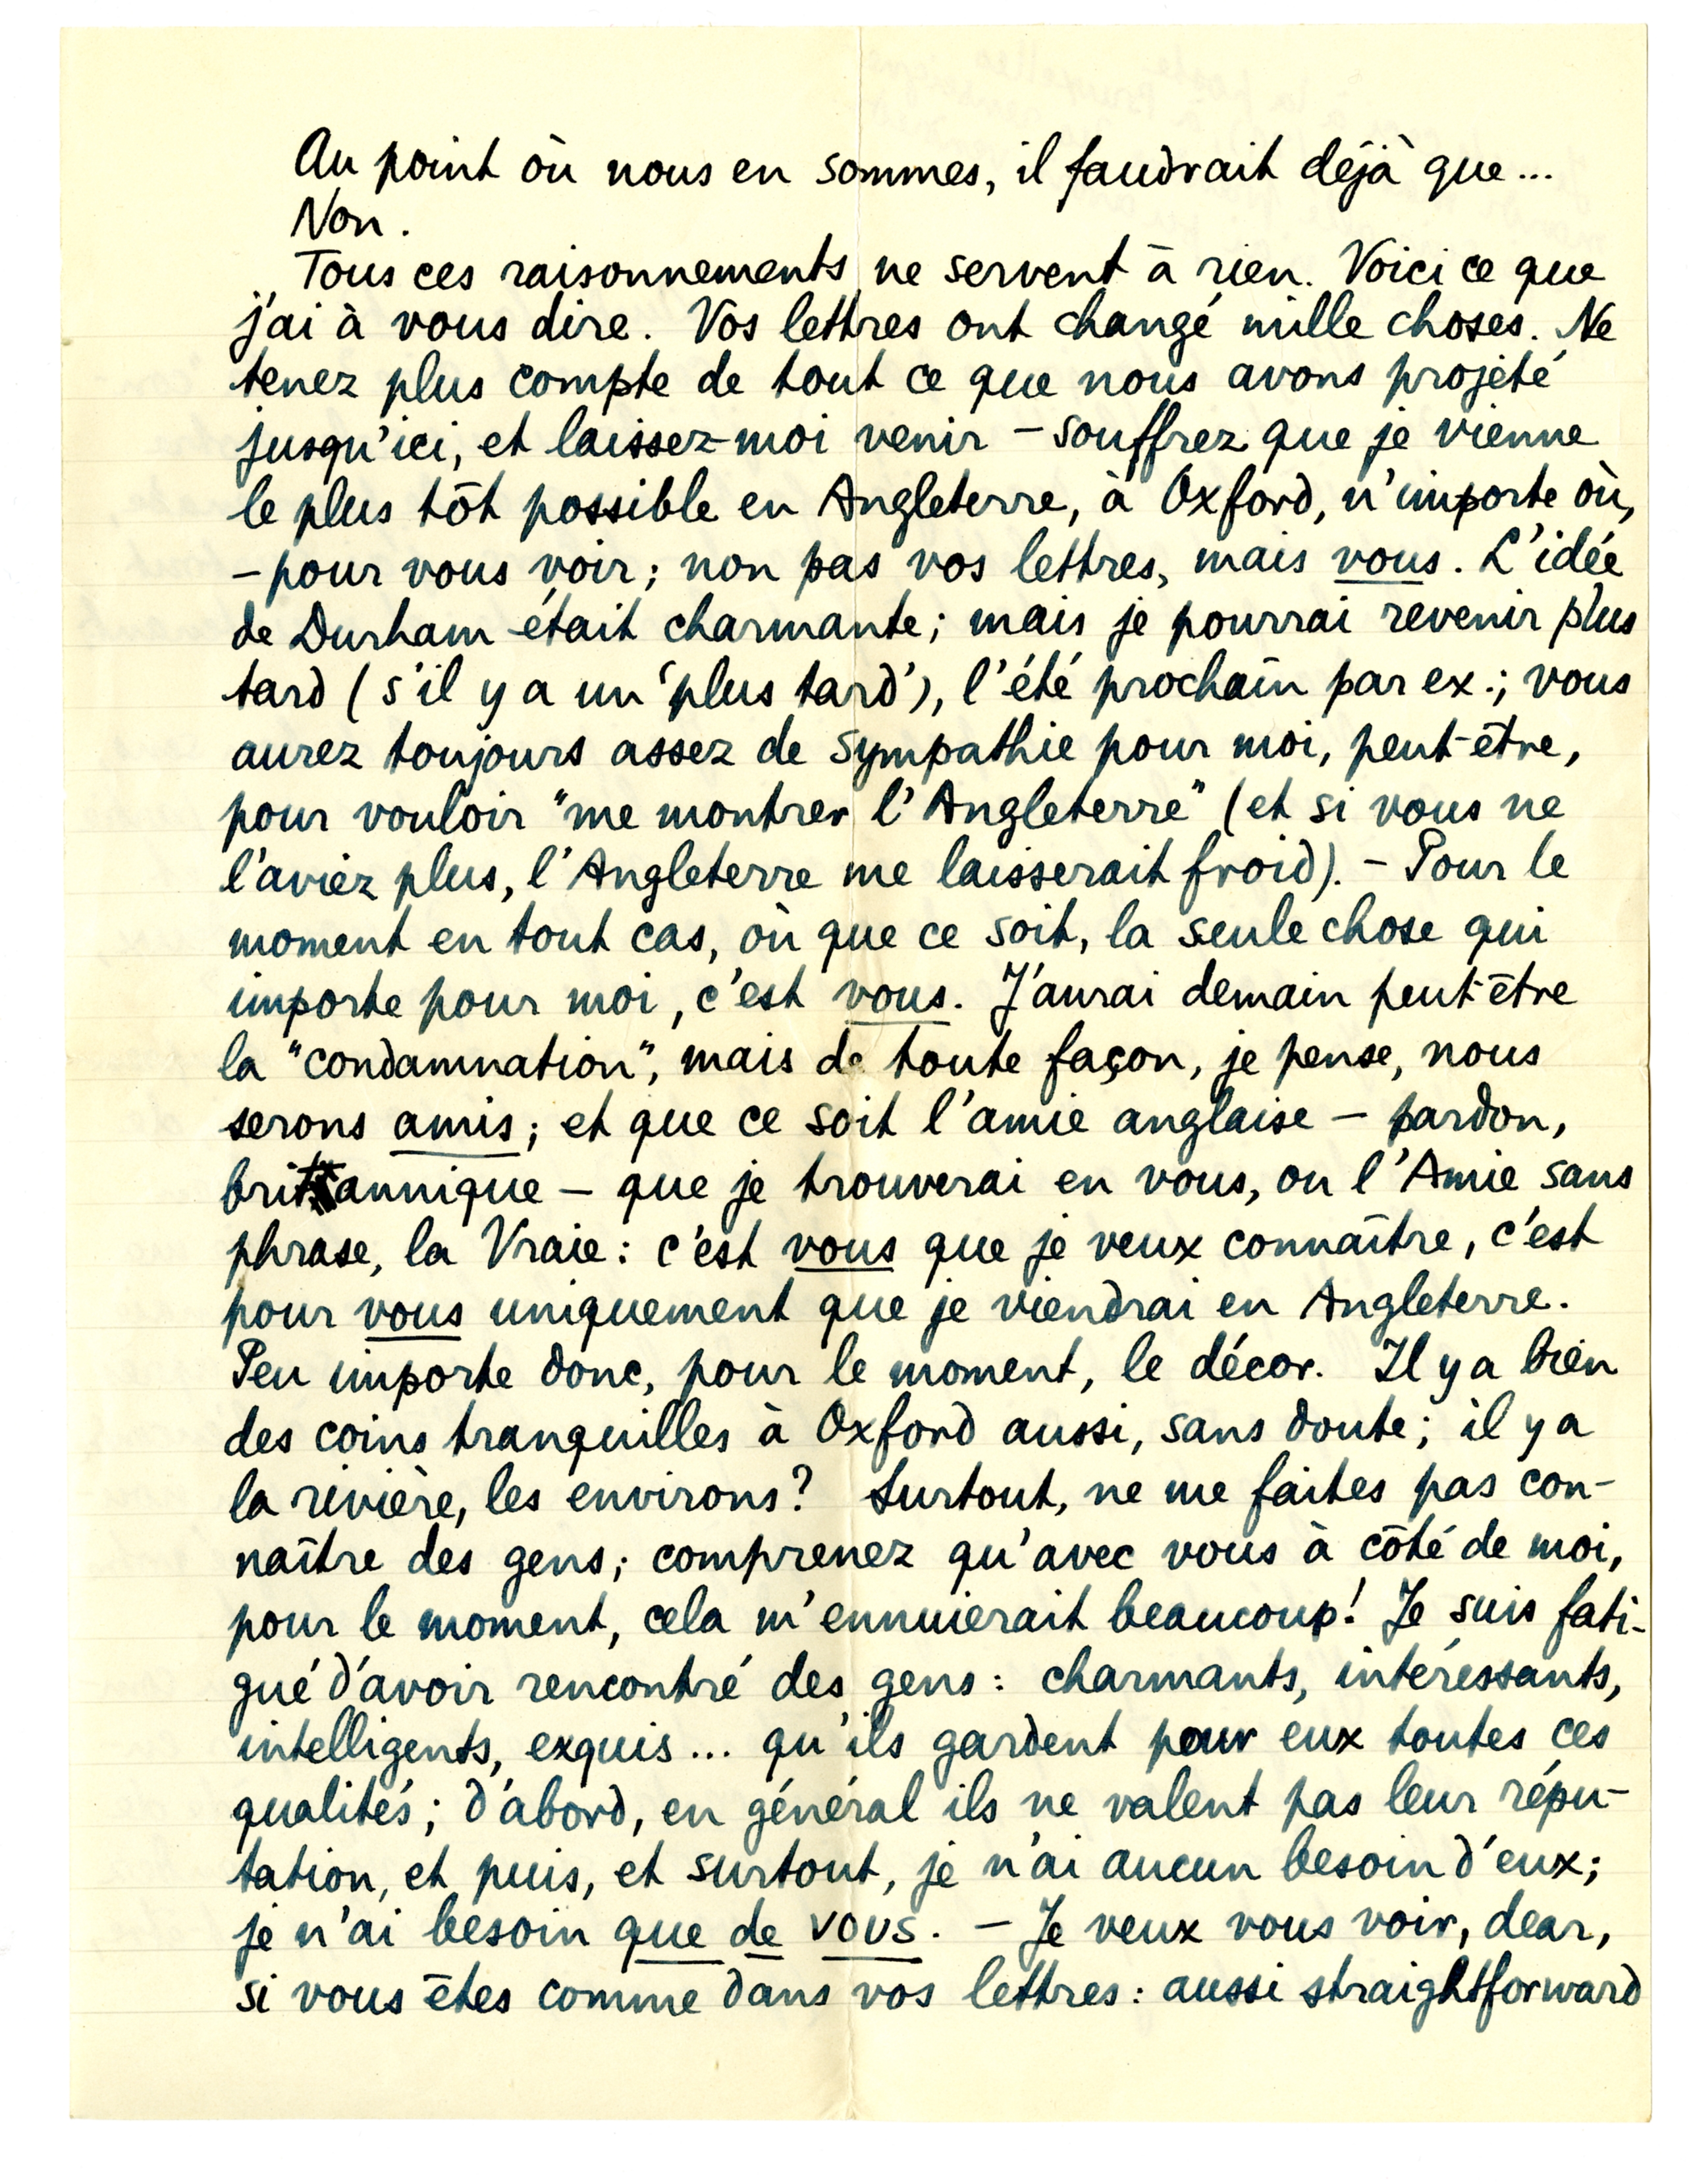 Au point où nous en sommes, il faudrait déjà que...
Non.
Tous ces raisonnements ne servent à rien. Voici ce que
j'ai à vous dire. Vos lettres ont changé mille choses. Ne
tenez plus compte de tout ce que nous avons projeté
jusqu'ici, et laissez-moi venir – souffrez que je vienne
le plus tôt possible en Angleterre, à Oxford, n'importe où,
– pour vous voir; non pas vos lettres, mais vous. L'idée
de Durham était charmante; mais je pourrai revenir plus
tard (s'il y a un 'plus tard'), l'été prochain par ex.; vous
aurez toujours assez de sympathie pour moi, peut-être,
pour vouloir "me montrer l'Angleterre" (et si vous ne
l'aviez plus, l'Angleterre me laisserait froid). – Pour le
moment en tout cas, où que ce soit, la seule chose qui
importe pour moi, c'est vous. J'aurai demain peut-être
la "condamnation", mais de toute façon, je pense, nous
serons amis; et que ce soit l'amie anglaise – pardon,
britannique – que je trouverai en vous, ou l'Amie sans
phrase, la Vraie: c'est vous que je veux connaître, c'est
pour vous uniquement que je viendrai en Angleterre.
Peu importe donc, pour le moment, le décor. Il y a bien
des coins tranquilles à Oxford aussi, sans doute; il y a
la rivière, les environs? Surtout, ne me faites pas con-
naître des gens; comprenez qu'avec vous à côté de moi,
pour le moment, cela m'ennuierait beaucoup! Je suis fati-
gué d'avoir rencontré des gens: charmants, intéressants,
intelligents, exquis... qu'ils gardent pour eux toutes ces
qualités; d'abord, en général ils ne valent pas leur répu-
tation, et puis, et surtout, je n'ai aucun besoin d'eux;
je n'ai besoin que de vous. – Je veux vous voir, dear,
si vous êtes comme dans vos lettres: aussi straightforward